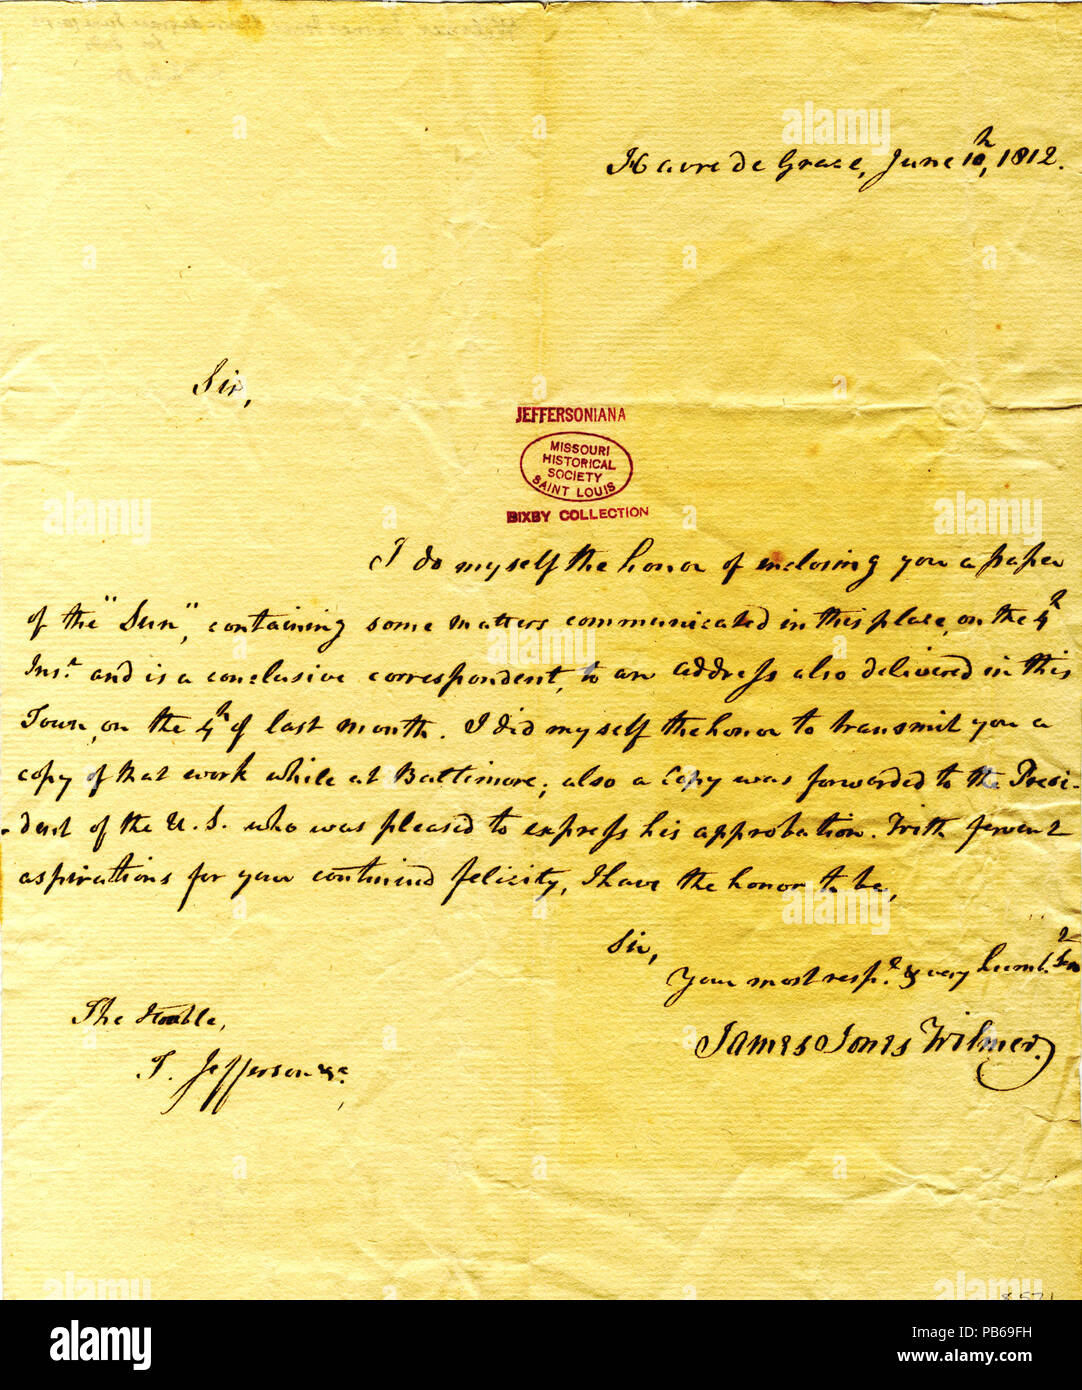 Havre de Grace, June 10th, 1812.
Sir,
JEFFERSONIANA
MISSOURI
HISTORICAL
SOCIETY
SAINT LOUIS
BIXBY COLLECTION
I do myself the honor of inclosing you a paper
of the "Sun", containing some matters communicated in this place, on the 4th
Inst. and is a conclusive correspondent, to an address also delivered in this
Town, on the 4th of last month. I did myself the honor to transmit you a
copy of that work while at Baltimore; also a Copy was forwarded to the Presi-
dent of the U. S. who was pleased to express his approbation. With fervent
aspirations for your continued felicity, I have the honor to be,
Sir,
Your most resp.t & very humb.
James Jones Wilmer.
The Honble,
T. Jefferson &c.
alamy
a
Image ID: PB69FH
www.alamy.com